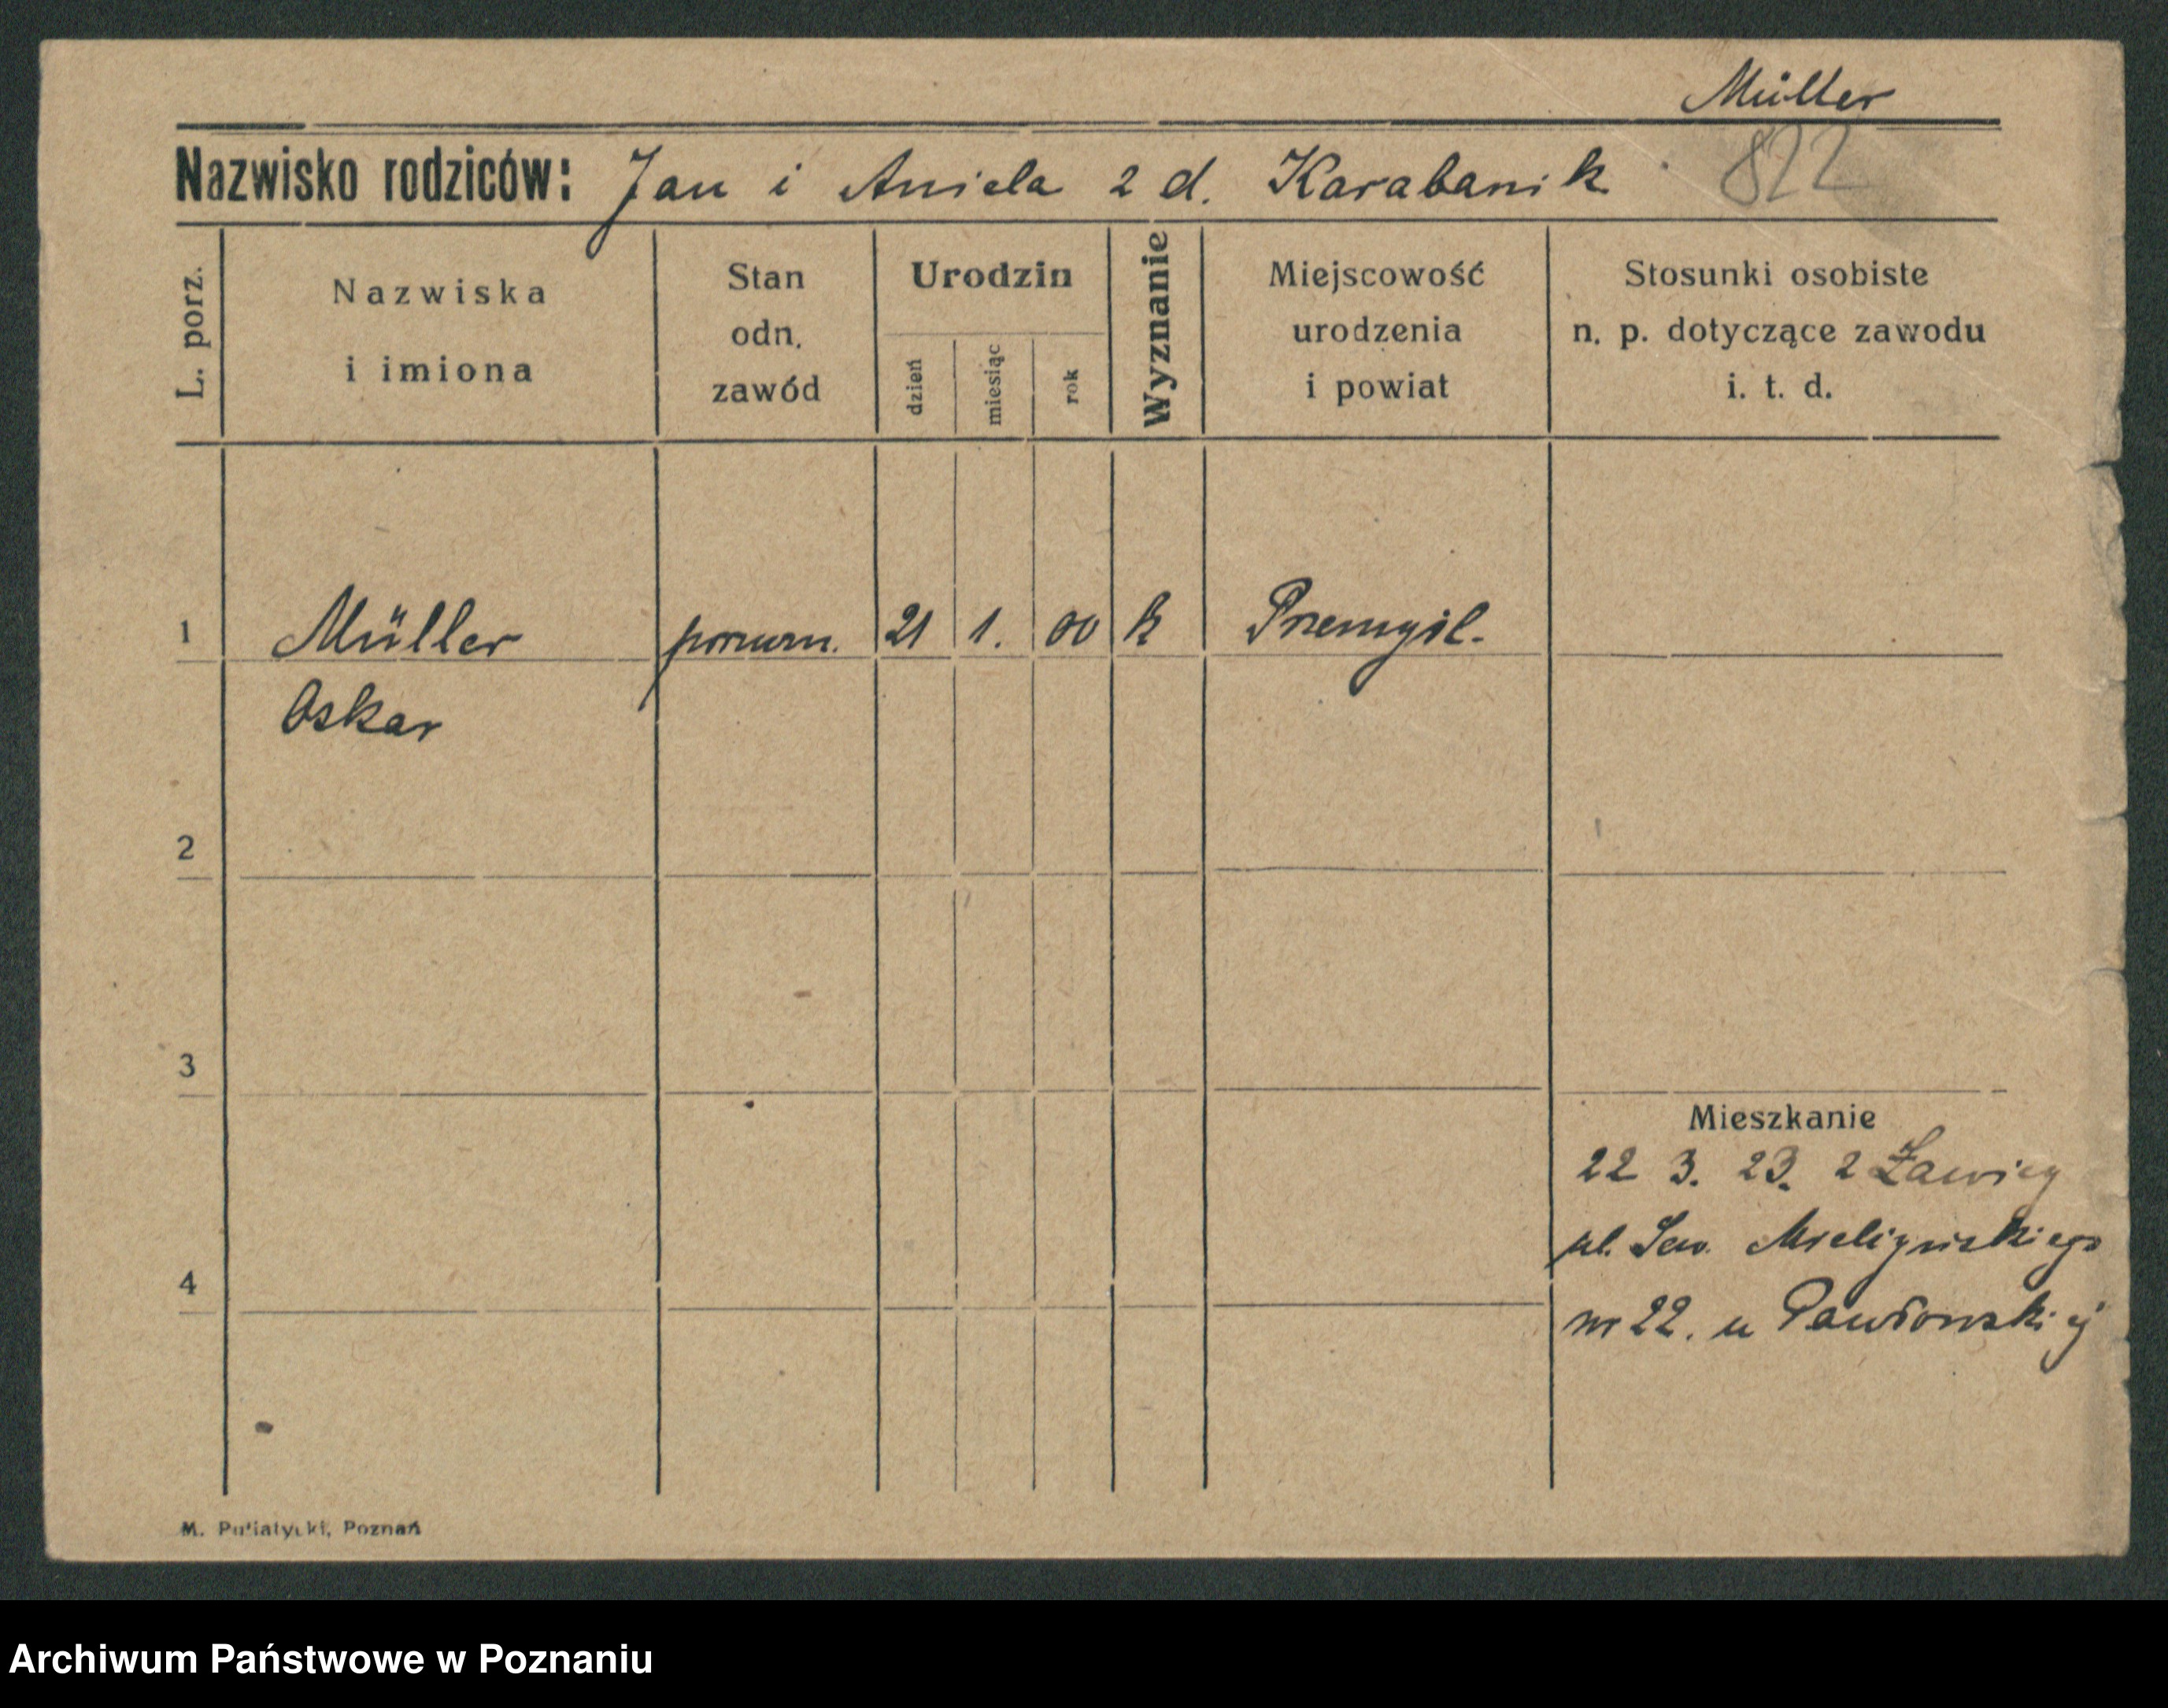 Müller
Nazwisko rodziców: Jan i Aniela z d. Karabanik
822
L. porz.
Nazwiska i imiona
Stan odn. zawód
Urodzin
dzień
miesiąc
rok
Wyznanie
Miejscowość urodzenia i powiat
Stosunki osobiste n. p. dotyczące zawodu i. t. d.
1 Müller 21 1. 00 k Przemyśl.
Oskar
2
3
Mieszkanie
22 3. 23. z Ławicy
ul. Sew. Mielżyńskiego
4
nr 22. u Pawłowskiej
M. Putiatycki, Poznań
Archiwum Państwowe w Poznaniu